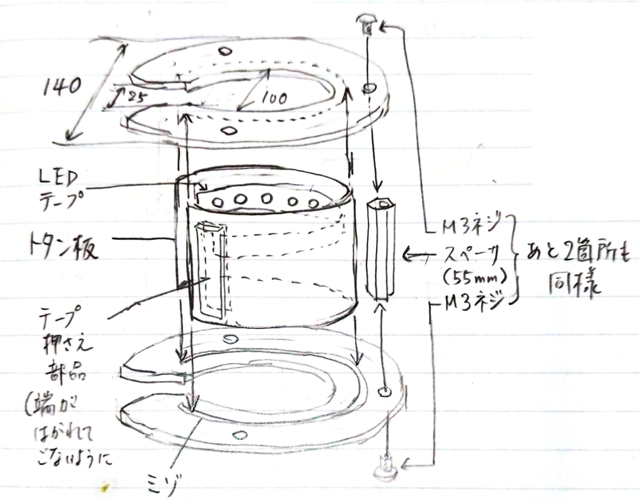 140
25
100
LED
テープ
トタン板
テープ
押さえ
部品
(端が
はがれて
こないように
ミゾ
M3ネジ
スペーサ
(55mm)
M3ネジ
あと2箇所も
同様